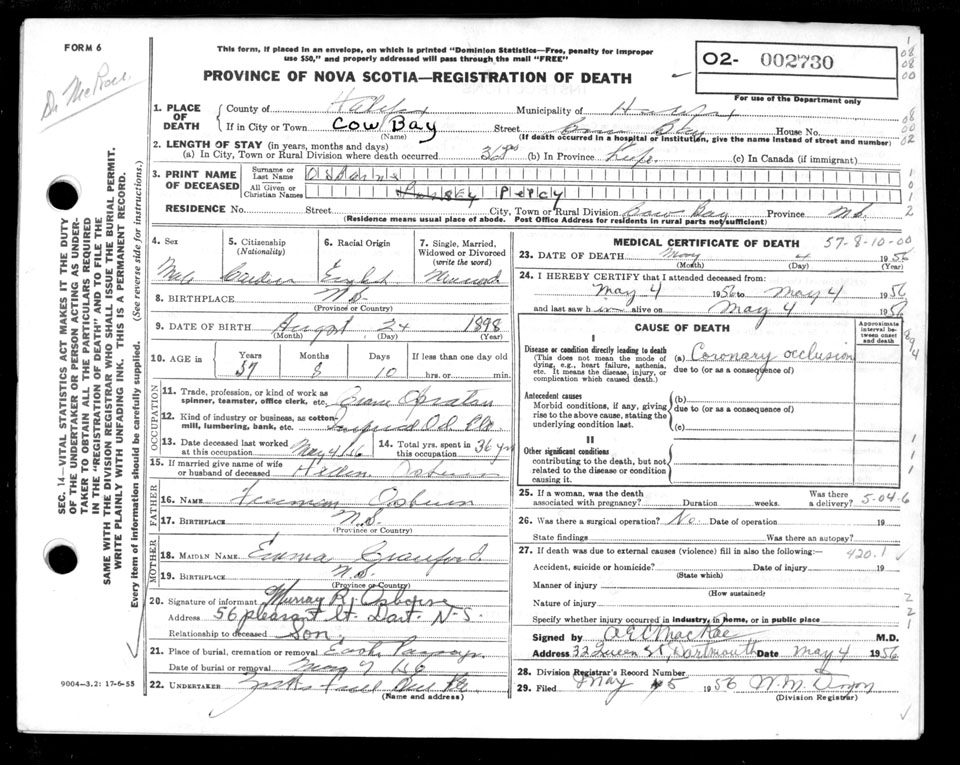 FORM 6
This form, if placed in an envelope, on which is printed "Dominion Statistics—Free, penalty for improper
use $50," and properly addressed will pass through the mail "FREE"
PROVINCE OF NOVA SCOTIA—REGISTRATION OF DEATH
O2- 002730
For use of the Department only
Dr
1. PLACE OF DEATH
County of Halifax Municipality of Halifax
If in City or Town Cow Bay Street Cow Bay House No.
(Name) (If death occurred in a hospital or institution, give the name instead of street and number)
2. LENGTH OF STAY (in years, months and days)
(a) In City, Town or Rural Division where death occurred 36 yrs (b) In Province Life (c) In Canada (if immigrant)
3. PRINT NAME OF DECEASED
Surname or Last Name Osborne
All Given or Christian Names Percy
RESIDENCE No. Street City, Town or Rural Division Cow Bay Province N.S.
(Residence means usual place of abode. Post Office Address for residents in rural parts not sufficient)
4. Sex Male
5. Citizenship (Nationality) Canadian
6. Racial Origin English
7. Single, Married, Widowed or Divorced (write the word) Married
8. BIRTHPLACE N.S.
(Province or Country)
9. DATE OF BIRTH August 24 1898
(Month) (Day) (Year)
10. AGE in Years 57 Months 8 Days 10 If less than one day old hrs. or min.
OCCUPATION
11. Trade, profession, or kind of work as spinner, teamster, office clerk, etc. Crane Operator
12. Kind of industry or business, as cotton-mill, lumbering, bank, etc. Imperial Oil
13. Date deceased last worked at this occupation May 4/56
14. Total yrs. spent in this occupation 36 yrs
15. If married give name of wife or husband of deceased Osborn
FATHER
16. NAME Freeman Osborn
17. BIRTHPLACE N.S.
(Province or Country)
MOTHER
18. MAIDEN NAME Emma Crawford
19. BIRTHPLACE N.S.
(Province or Country)
20. Signature of informant Murray R. Osborne
Address 56 Pleasant St. Dart. N-S.
Relationship to deceased Son
21. Place of burial, cremation or removal East. Passage.
Date of burial or removal May 7 56
22. UNDERTAKER
(Name and address)
9004—3.2: 17-6-55
MEDICAL CERTIFICATE OF DEATH 57-8-10-00
23. DATE OF DEATH May 4 1956
(Month) (Day) (Year)
24. I HEREBY CERTIFY that I attended deceased from:
May 4 1956 to May 4 1956
and last saw him alive on May 4 1956
CAUSE OF DEATH
Approximate interval between onset and death
I
Disease or condition directly leading to death
(This does not mean the mode of dying, e.g., heart failure, asthenia, etc. It means the disease, injury, or complication which caused death.)
(a) Coronary occlusion
due to (or as a consequence of)
Antecedent causes
Morbid conditions, if any, giving rise to the above cause, stating the underlying condition last.
(b)
due to (or as a consequence of)
(c)
II
Other significant conditions
contributing to the death, but not related to the disease or condition causing it.
25. If a woman, was the death associated with pregnancy? Duration weeks. Was there a delivery? 5-04-6
26. Was there a surgical operation? No. Date of operation 19
State findings Was there an autopsy?
27. If death was due to external causes (violence) fill in also the following:— 420.1
Accident, suicide or homicide? Date of injury 19
(State which)
Manner of injury
(How sustained)
Nature of injury
Specify whether injury occurred in industry, in home, or in public place
Signed by A E C MacRae M.D.
Address 32 Queen St, Dartmouth Date May 4 1956
28. Division Registrar's Record Number
29. Filed May 5 1956
(Division Registrar)
SEC. 14.—VITAL STATISTICS ACT MAKES IT THE DUTY
OF THE UNDERTAKER OR PERSON ACTING AS UNDER-
TAKER TO OBTAIN ALL THE PARTICULARS REQUIRED
IN THE "REGISTRATION OF DEATH" AND TO FILE THE
SAME WITH THE DIVISION REGISTRAR WHO SHALL ISSUE THE BURIAL PERMIT.
WRITE PLAINLY WITH UNFADING INK. THIS IS A PERMANENT RECORD.
Every item of information should be carefully supplied. (See reverse side for instructions.)